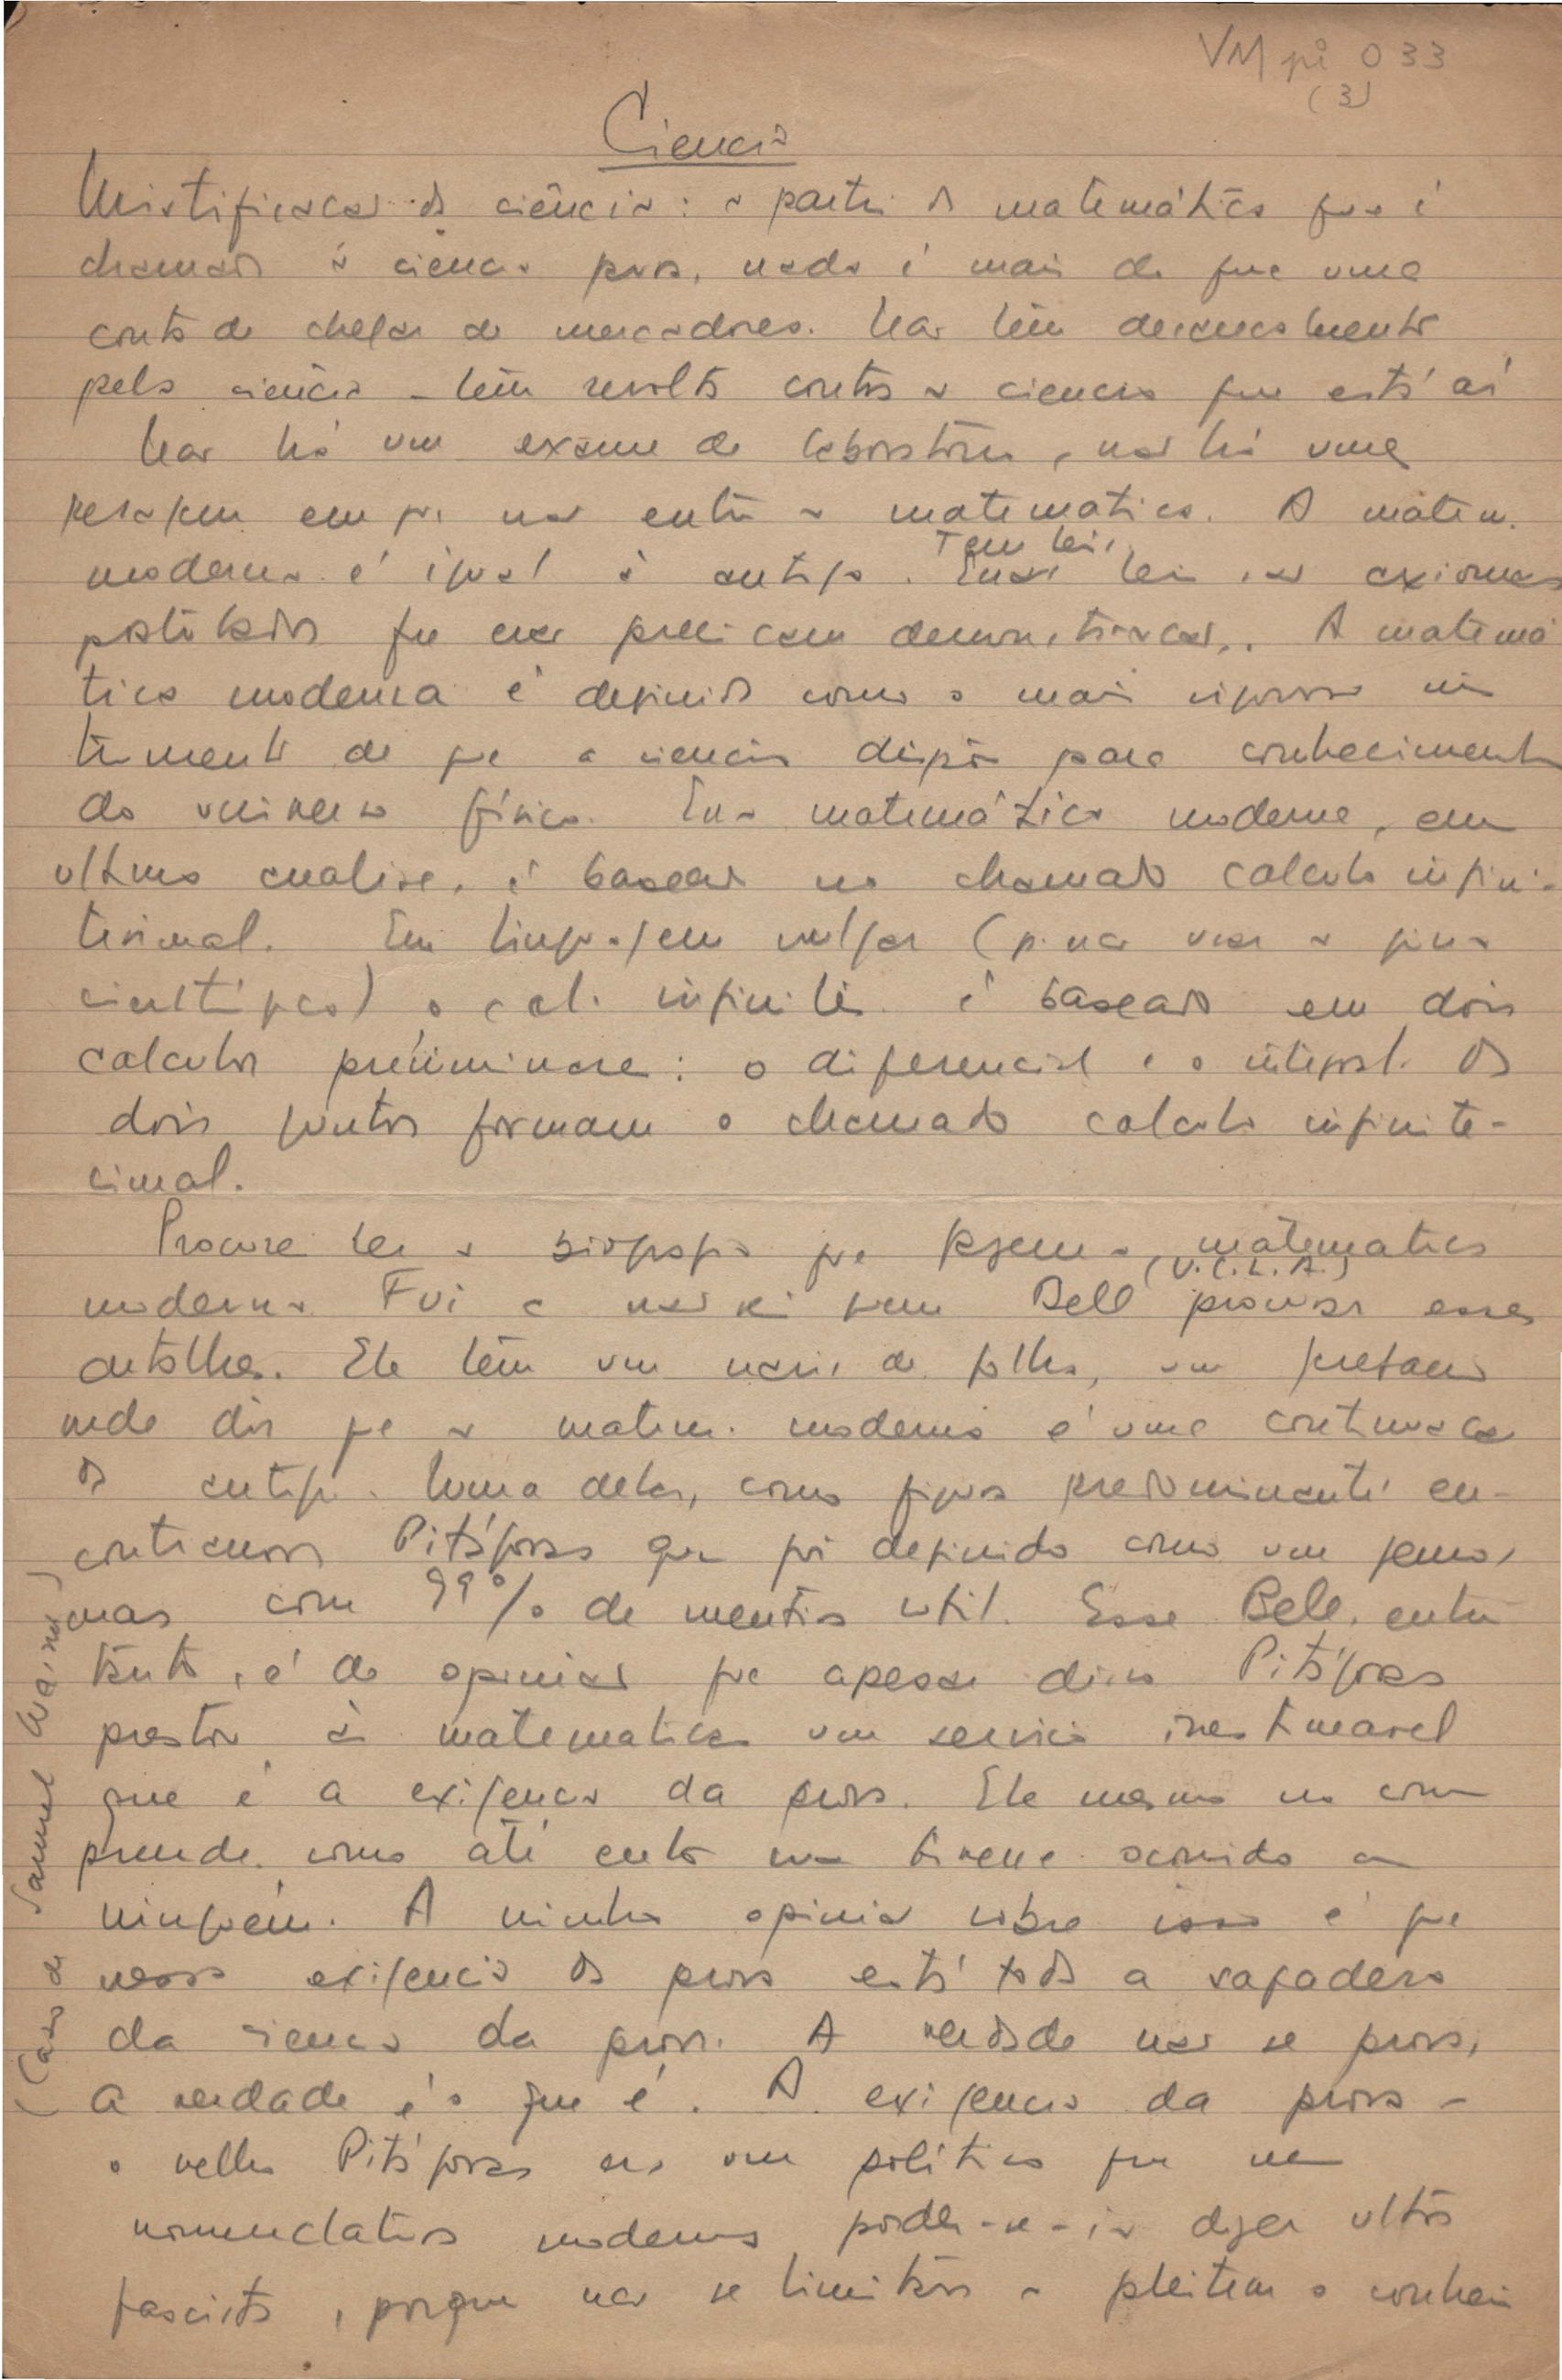 VM pi 033
(3)
Ciencia
Mistificacao da ciência: a parte da matemática que é
chamada a ciencia pura, nada é mais do que uma
conta de chegar de mercadores. Nao têm
pela ciência - têm revolta contra a ciencia que está aí
Nao há um exame de laboratorio, nao há uma
pesagem em que nao entre a matematica. A matem.
Tem leis,
moderna é igual à antiga. Essas leis sao axiomas
postulados que nao precisam demonstracao. A matemá
tica moderna é definida como o mais rigoroso ins
trumento de que a ciencia dispõe para conhecimento
do universo físico. Essa matemática moderna, em
ultima analise, é baseada no chamado calculo infini-
tesimal. Em linguagem vulgar (p. nao usar a giria
cientifica) o cal. infinites. é baseado em dois
calculos preliminares: o diferencial e o integral. Os
dois juntos formam o chamado calculo infinite-
cimal.
Procure ler a biografia que fizeram a matematica
(U.C.L.A.)
moderna. Fui a nao sei quem Bell procurar esses
detalhes. Ele têm um naris de folha, um
onde diz que a matem. moderna é uma continuacao
da antiga. Numa delas, como figura predominante en-
contramos Pitágoras que foi definido como um genio,
mas com 99% de mentira util. Esse Bell, entre
tanto, é de opiniao que apesar disso Pitágoras
prestou à matematica um servico inestimavel
que é a exigencia da prova. Ele mesmo nao com
prende como até entao nao tivesse ocorrido a
ninguém. A minha opiniao sobre isso é que
nessa exigencia da prova está toda a safadeza
da ciencia da prova. A verdade nao se prova,
a verdade é o que é. A exigencia da prova -
o velho Pitágoras era um politico que na
nomenclatura moderna poder-se-ia dizer ultra
fascista, porque nao se limitava a pleitear o conheci
(Caso de Samuel Wainer)